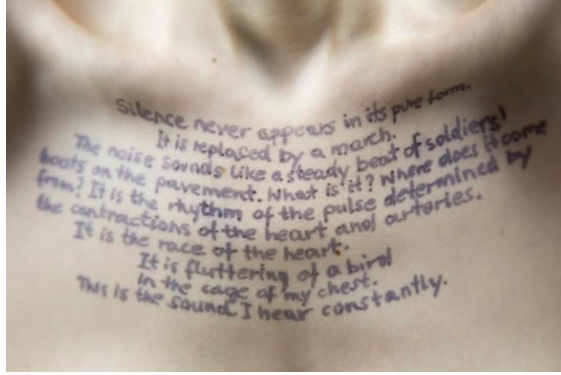 Silence never appears in its pure form.
It is replaced by a march.
The noise sounds like a steady beat of soldiers'
boots on the pavement. What is it? Where does it come
from? It is the rhythm of the pulse determined by
the contractions of the heart and arteries.
It is the race of the heart.
It is fluttering of a bird
in the cage of my chest.
This is the sound I hear constantly.